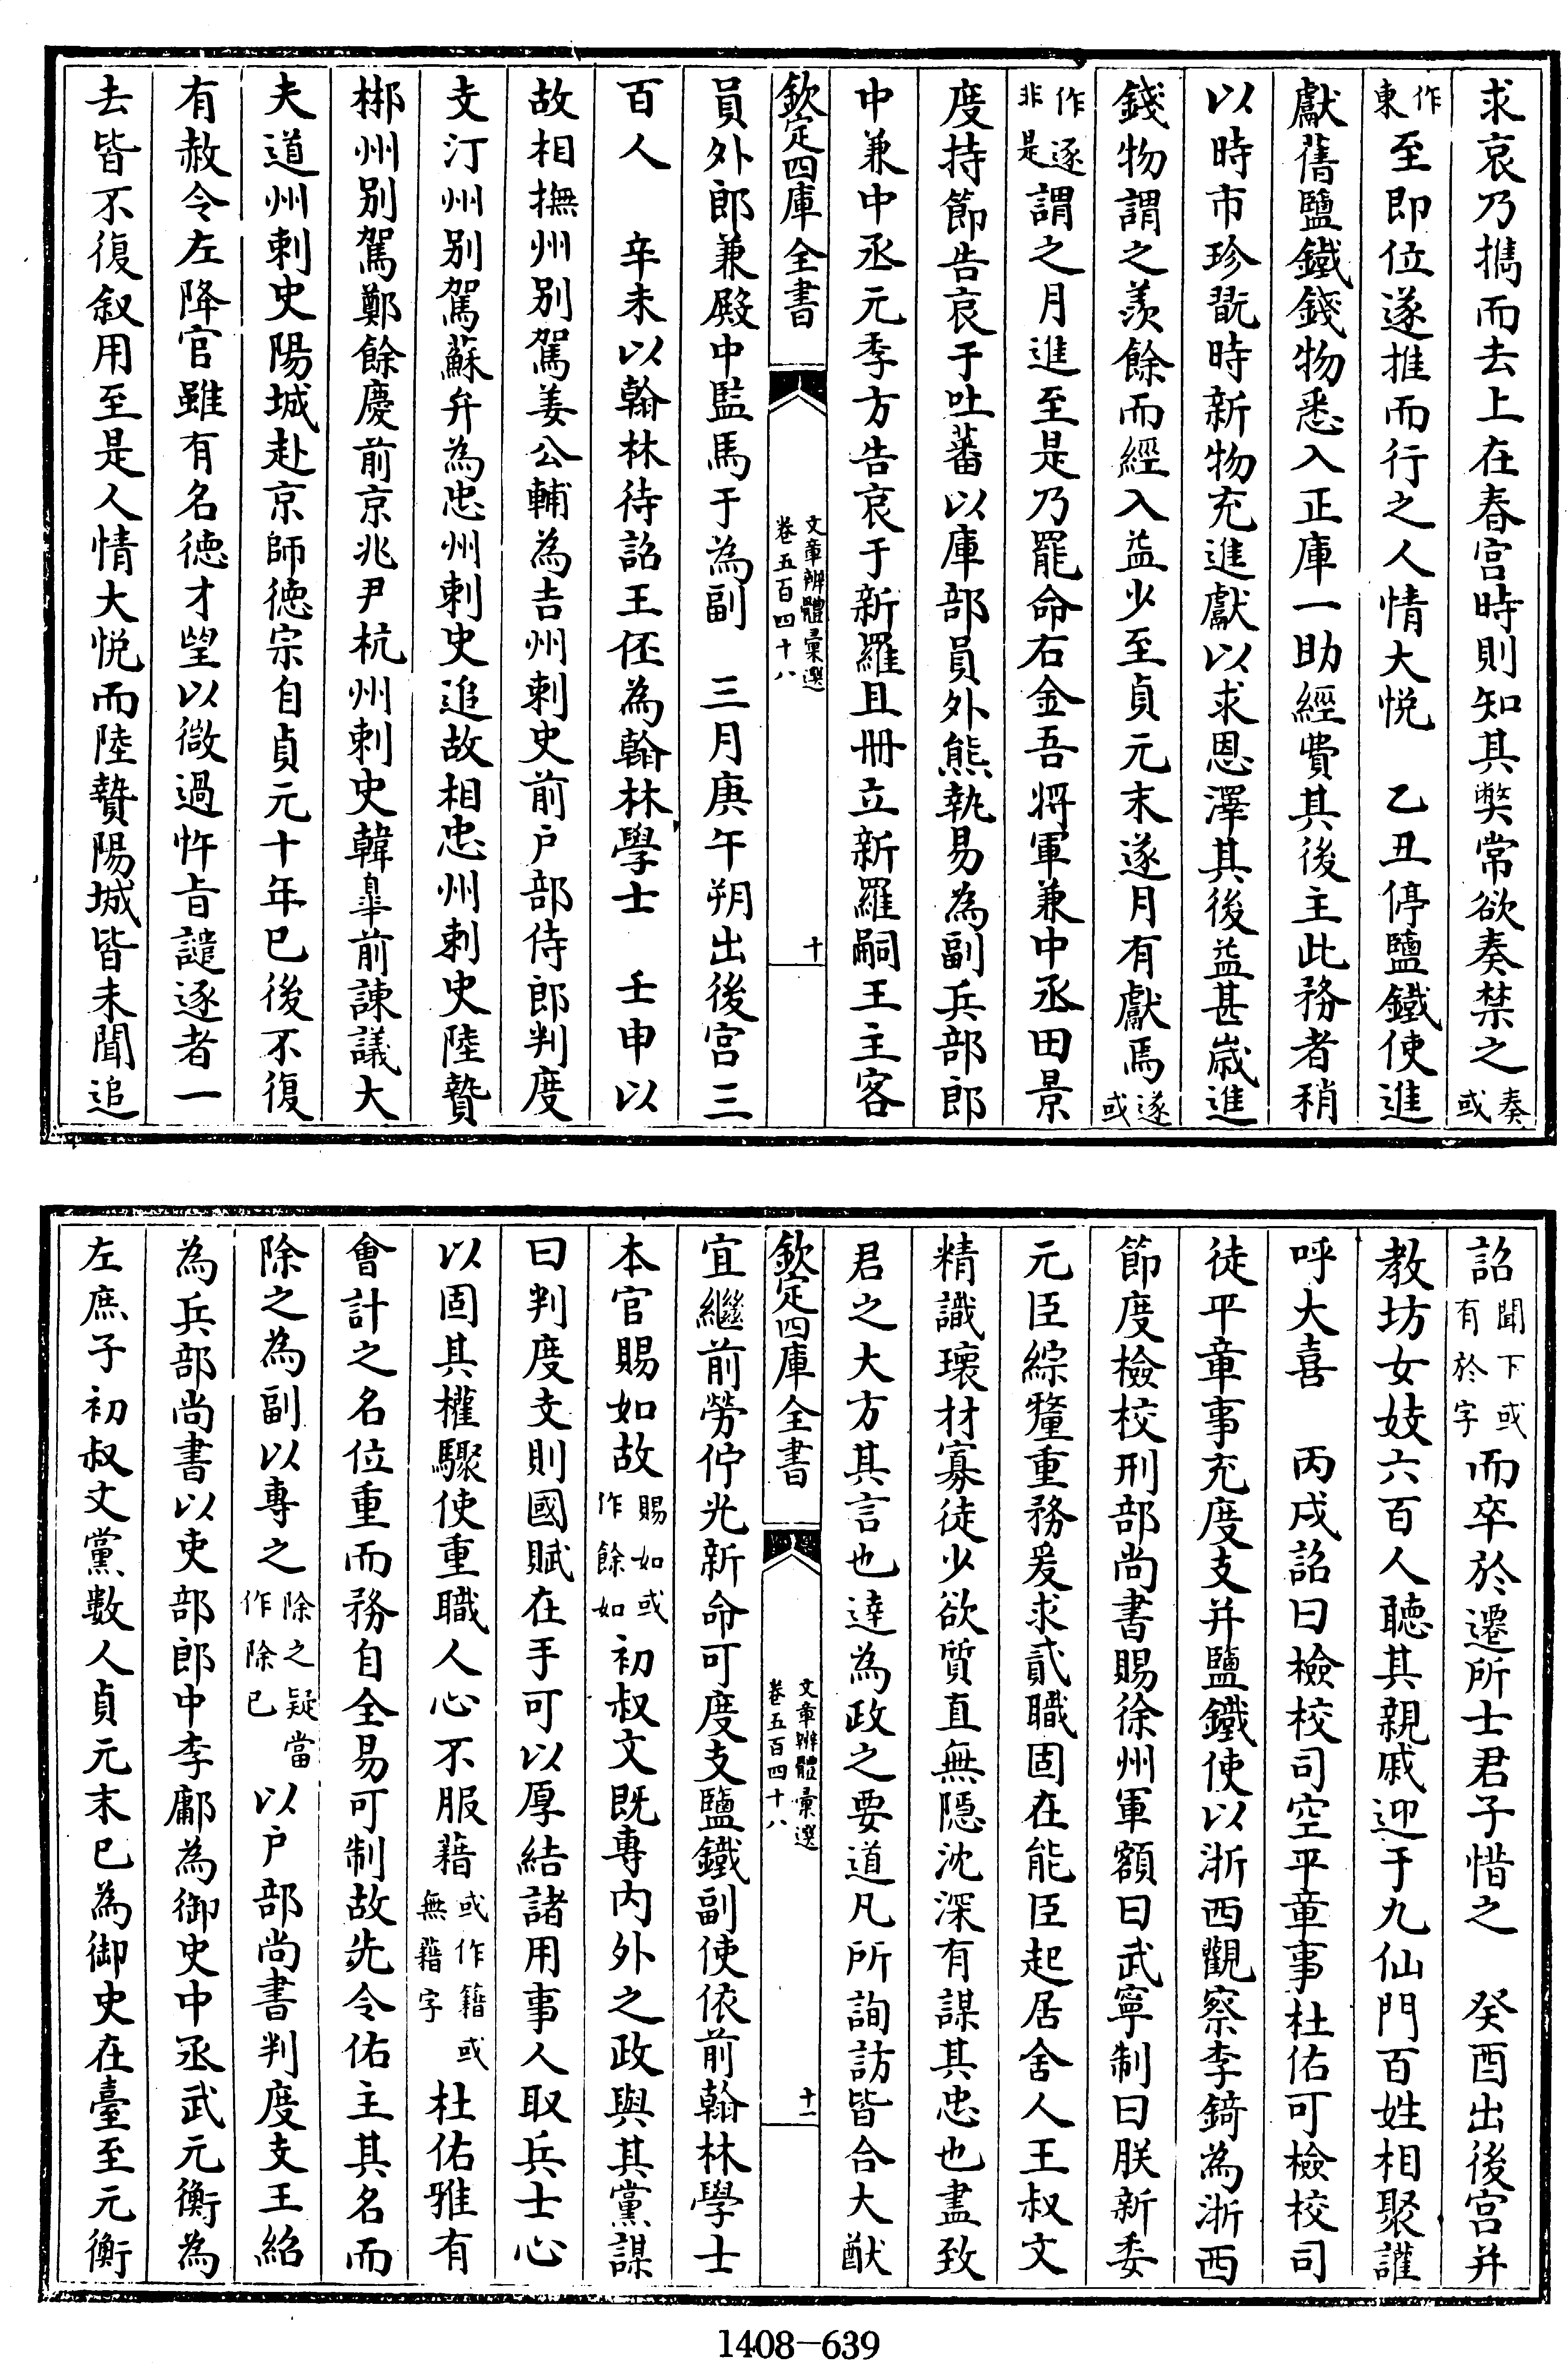 求哀乃攜而去上在春宮時則知其弊常欲奏禁之奏或
作東至即位遂推而行之人情大悅　乙丑停鹽鐵使進
獻舊鹽鐵錢物悉入正庫一助經費其後主此務者稍
以時市珍翫時新物充進獻以求恩澤其後益甚歲進
錢物謂之羨餘而經入益少至貞元末遂月有獻焉遂或
作逐非是謂之月進至是乃罷命右金吾將軍兼中丞田景
度持節告哀于吐蕃以庫部員外熊執易為副兵部郎
中兼中丞元季方告哀于新羅且冊立新羅嗣王主客
欽定四庫全書
文章辨體彙選
卷五百四十八
十
員外郎兼殿中監馬于為副　三月庚午朔出後宮三
百人　辛未以翰林待詔王伾為翰林學士　壬申以
故相撫州别駕姜公輔為吉州刺史前户部侍郎判度
支汀州别駕蘇弁為忠州刺史追故相忠州刺史陸贄
郴州别駕鄭餘慶前京兆尹杭州刺史韓臯前諫議大
夫道州刺史陽城赴京師德宗自貞元十年已後不復
有赦令左降官雖有名德才望以微過忤㫖譴逐者一
去皆不復叙用至是人情大悅而陸贄陽城皆未聞追
詔聞下或有於字而卒於遷所士君子惜之　癸酉出後宮并
教坊女妓六百人聽其親戚迎于九仙門百姓相聚讙
呼大喜　丙戌詔曰檢校司空平章事杜佑可檢校司
徒平章事充度支并鹽鐵使以浙西觀察李錡為浙西
節度檢校刑部尚書賜徐州軍額曰武寧制曰朕新委
元臣綜釐重務爰求貳職固在能臣起居舍人王叔文
精識瓌材寡徒少欲質直無隠沈深有謀其忠也盡致
君之大方其言也達為政之要道凡所詢訪皆合大猷
欽定四庫全書
文章辨體彙選
卷五百四十八
十一
宜繼前勞佇光新命可度支鹽鐵副使依前翰林學士
本官賜如故賜如或作餘如初叔文既專内外之政與其黨謀
曰判度支則國賦在手可以厚結諸用事人取兵士心
以固其權驟使重職人心不服藉或作籍或無藉字杜佑雅有
會計之名位重而務自全易可制故先令佑主其名而
除之為副以專之除之疑當作除已以户部尚書判度支王紹
為兵部尚書以吏部郎中李鄘為御史中丞武元衡為
左庶子初叔文黨數人貞元末已為御史在臺至元衡
1408-639